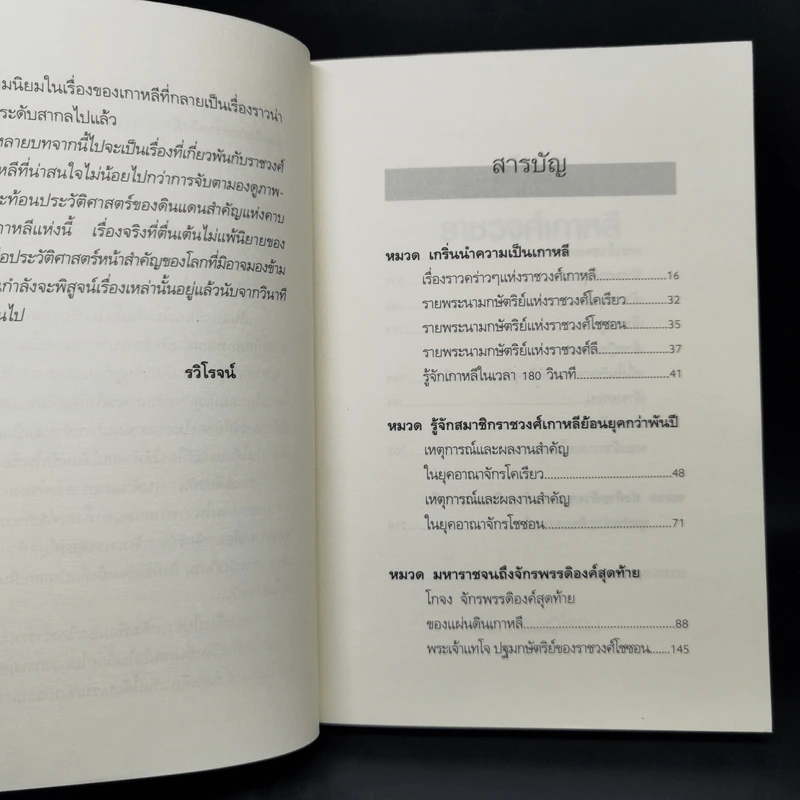 มนิยมในเรื่องของเกาหลีที่กลายเป็นเรื่องราวน่า
ระดับสากลไปแล้ว
หลายบทจากนี้ไปจะเป็นเรื่องที่เกี่ยวพันกับราชวงศ์
หลีที่น่าสนใจไม่น้อยไปกว่าการจับตามองดูภาพ-
ะท้อนประวัติศาสตร์ของดินแดนสำคัญแห่งคาบ
กาหลีแห่งนี้ เรื่องจริงที่ตื่นเต้นไม่แพ้นิยายของ
อประวัติศาสตร์หน้าสำคัญของโลกที่มิอาจมองข้าม
กำลังจะพิสูจน์เรื่องเหล่านั้นอยู่แล้วนับจากวินาที
นไป
รวิโรจน์
สารบัญ
หมวด เกริ่นนำความเป็นเกาหลี
เรื่องราวคร่าวๆแห่งราชวงศ์เกาหลี.....................16
รายพระนามกษัตริย์แห่งราชวงศ์โคเรียว.............32
รายพระนามกษัตริย์แห่งราชวงศ์โชซอน.............35
รายพระนามกษัตริย์แห่งราชวงศ์ลี.....................37
รู้จักเกาหลีในเวลา 180 วินาที..........................41
หมวด รู้จักสมาชิกราชวงศ์เกาหลีย้อนยุคกว่าพันปี
เหตุการณ์และผลงานสำคัญ
ในยุคอาณาจักรโคเรียว...................................48
เหตุการณ์และผลงานสำคัญ
ในยุคอาณาจักรโชซอน...................................71
หมวด มหาราชจนถึงจักรพรรดิองค์สุดท้าย
โกจง จักรพรรดิองค์สุดท้าย
ของแผ่นดินเกาหลี.........................................88
พระเจ้าแทโจ ปฐมกษัตริย์ของราชวงศ์โชซอน......145